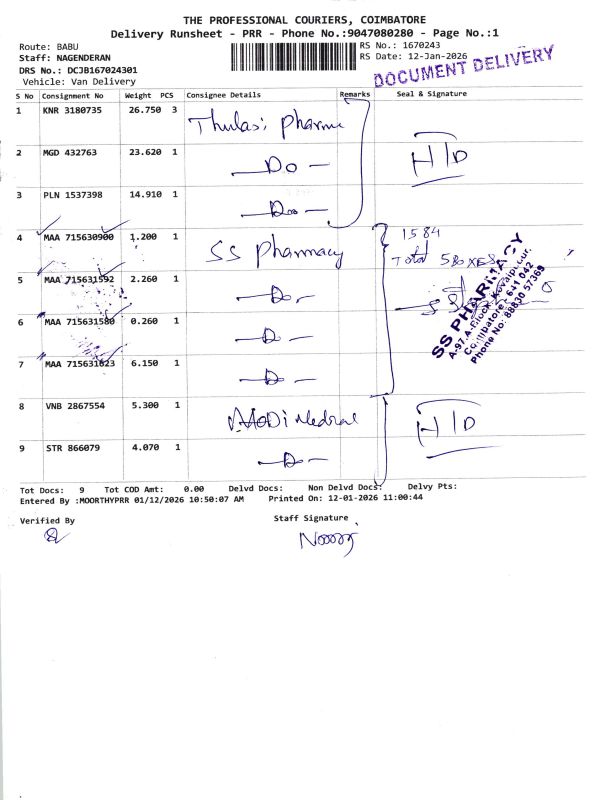 THE PROFESSIONAL COURIERS, COIMBATORE
Delivery Runsheet - PRR - Phone No.:9047080280 - Page No.:1
Route: BABU
RS No.: 1670243
Staff: NAGENDERAN
RS Date: 12-Jan-2026
DRS No.: DCJB167024301
Vehicle: Van Delivery
DOCUMENT DELIVERY
S No Consignment No Weight PCS Consignee Details Remarks Seal & Signature
1 KNR 3180735 26.750 3 Thulasi Pharma
2 MGD 432763 23.620 1 — Do — H/D
3 PLN 1537398 14.910 1 — Do —
4 MAA 715630900 1.200 1 SS Pharmacy 1584
Total 5 BOXES
5 MAA 715631592 2.260 1 — Do —
6 MAA 715631580 0.260 1 — D —
7 MAA 715631623 6.150 1 — D —
SS PHARMACY
A-97, A-Block, Kovaipudur,
Coimbatore - 641 042
Phone No: 88830 57369
8 VNB 2867554 5.300 1 MODI Medical H/D
9 STR 866079 4.070 1 — D —
Tot Docs: 9 Tot COD Amt: 0.00 Delvd Docs: Non Delvd Docs: Delvy Pts:
Entered By :MOORTHYPRR 01/12/2026 10:50:07 AM Printed On: 12-01-2026 11:00:44
Verified By Staff Signature